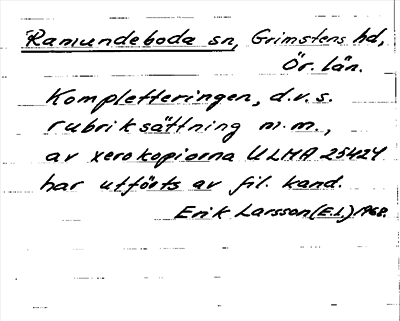 Ramundeboda sn, Grimstens hd,
Ör. län.
Kompletteringen, d.v.s.
rubriksättning m.m.,
av xerokopiorna ULMA 25424
har utförts av fil. kand.
Erik Larsson (E.L.) 1968.